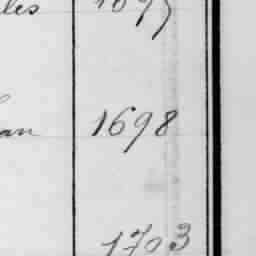 les 1695
an 1698
1703